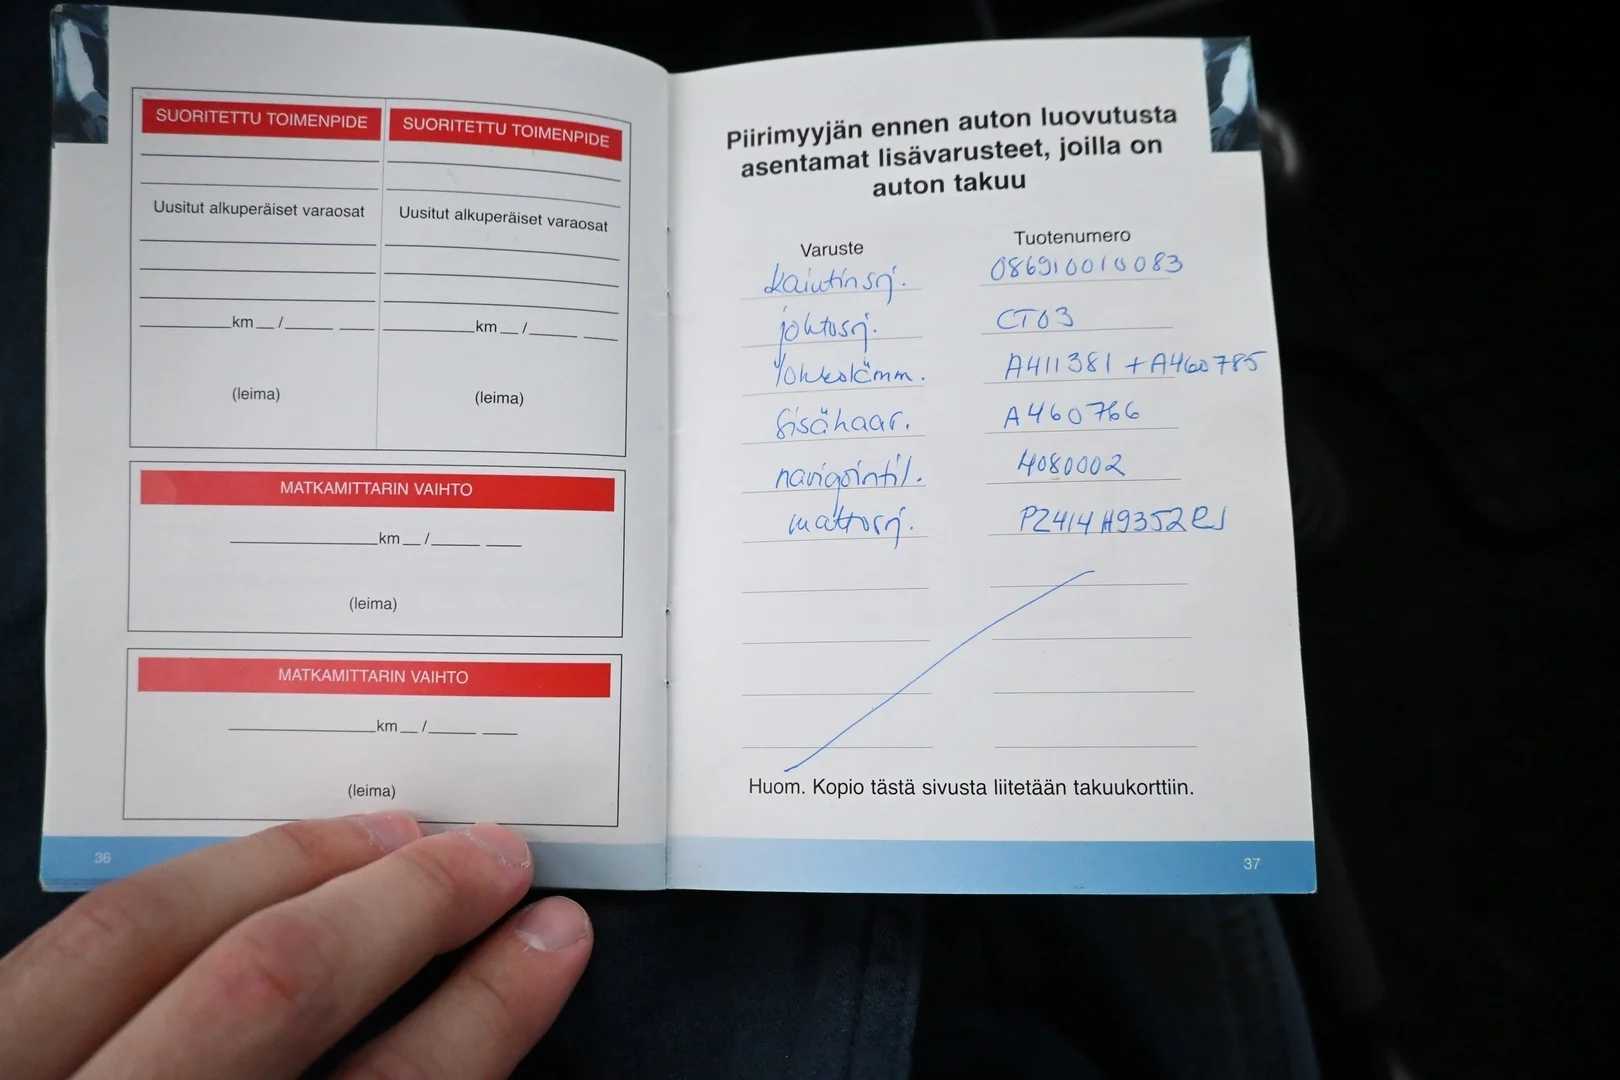 SUORITETTU TOIMENPIDE
Uusitut alkuperäiset varaosat
km __ /
(leima)
SUORITETTU TOIMENPIDE
Uusitut alkuperäiset varaosat
km __ /
(leima)
MATKAMITTARIN VAIHTO
km __ /
(leima)
MATKAMITTARIN VAIHTO
km __ /
(leima)
36
Piirimyyjän ennen auton luovutusta
asentamat lisävarusteet, joilla on
auton takuu
Varuste Tuotenumero
kaiutinsrj. 086910010083
johtosrj. CT03
lohkolämm. A411381 + A460785
sisähaar. A460766
navigointil. 4080002
mattosrj. PZ414H9352RJ
Huom. Kopio tästä sivusta liitetään takuukorttiin.
37